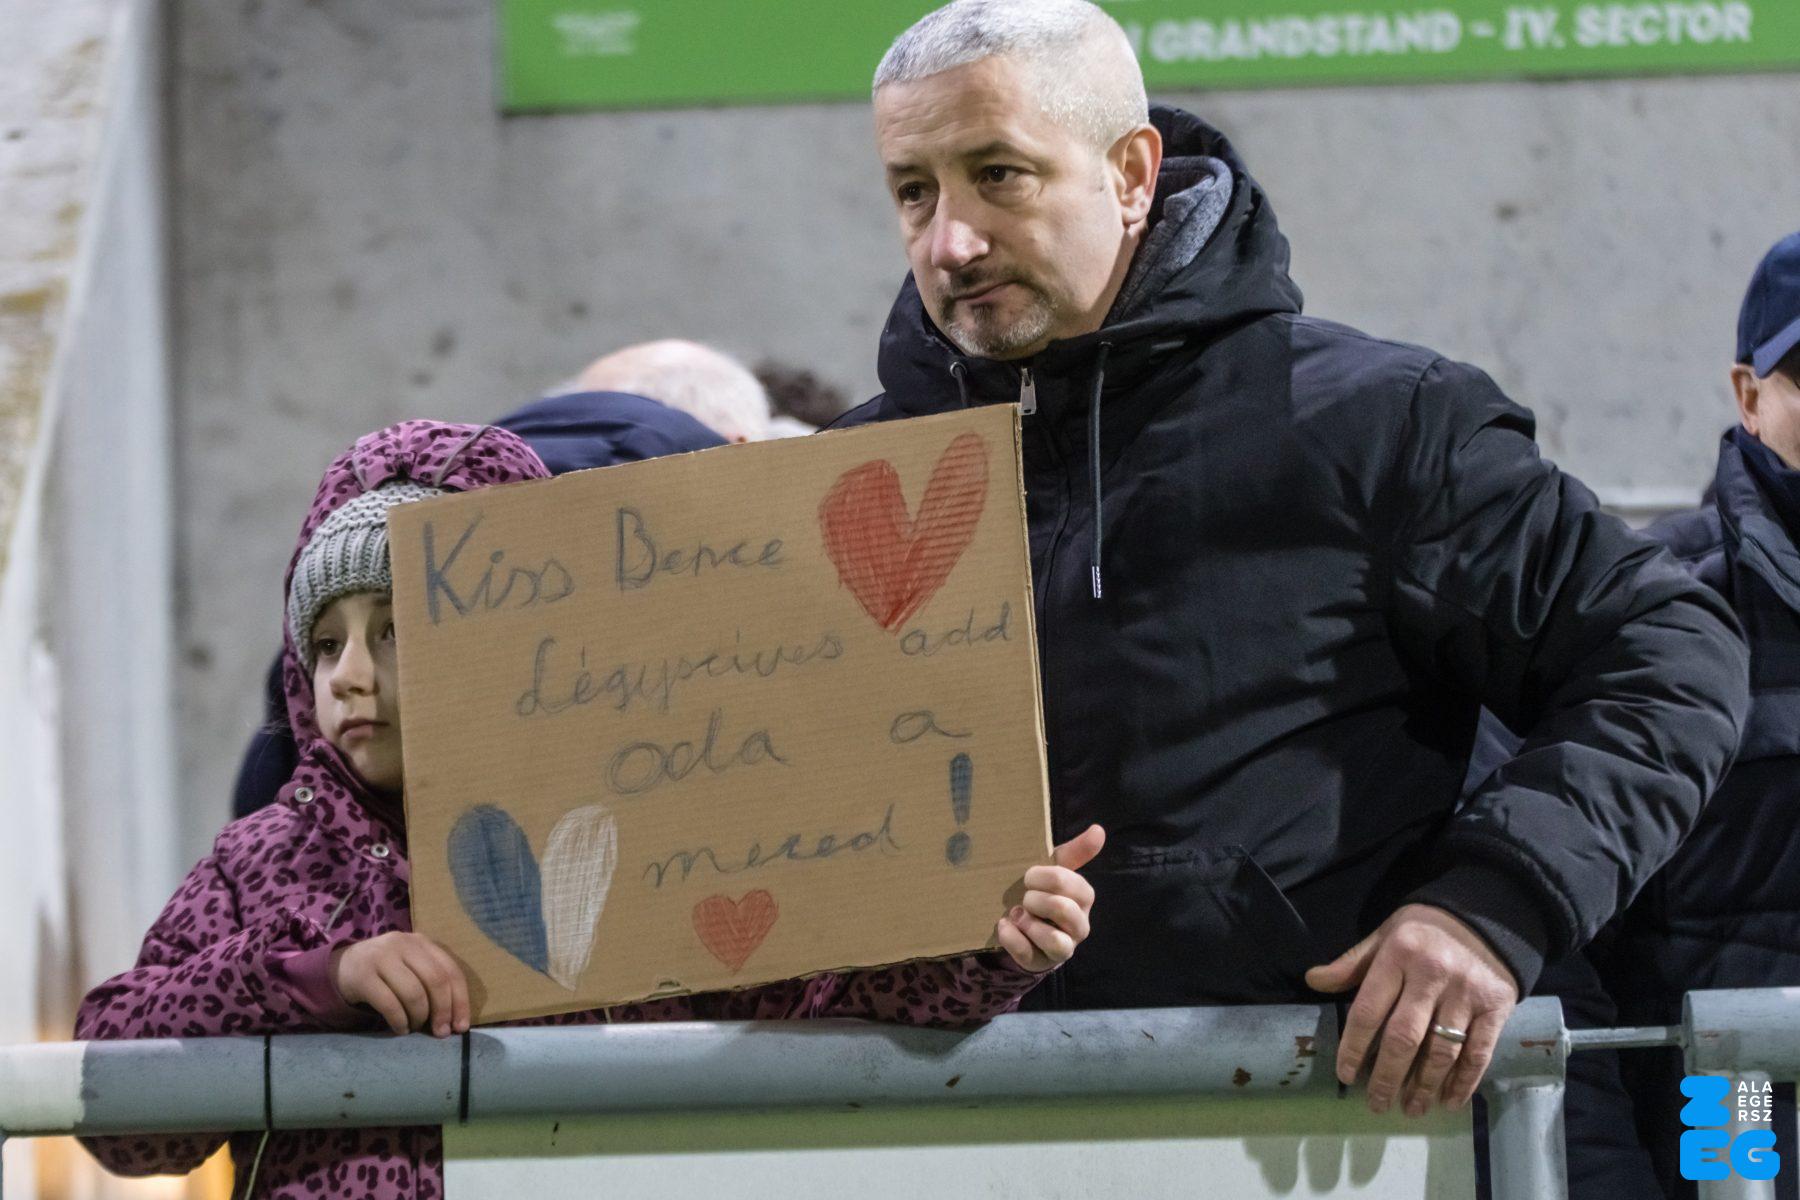 GRANDSTAND - IV. SECTOR
Kiss Bence
Légyscives add
oda a
mezed!
ALA
EGE
RSZ
ZEG